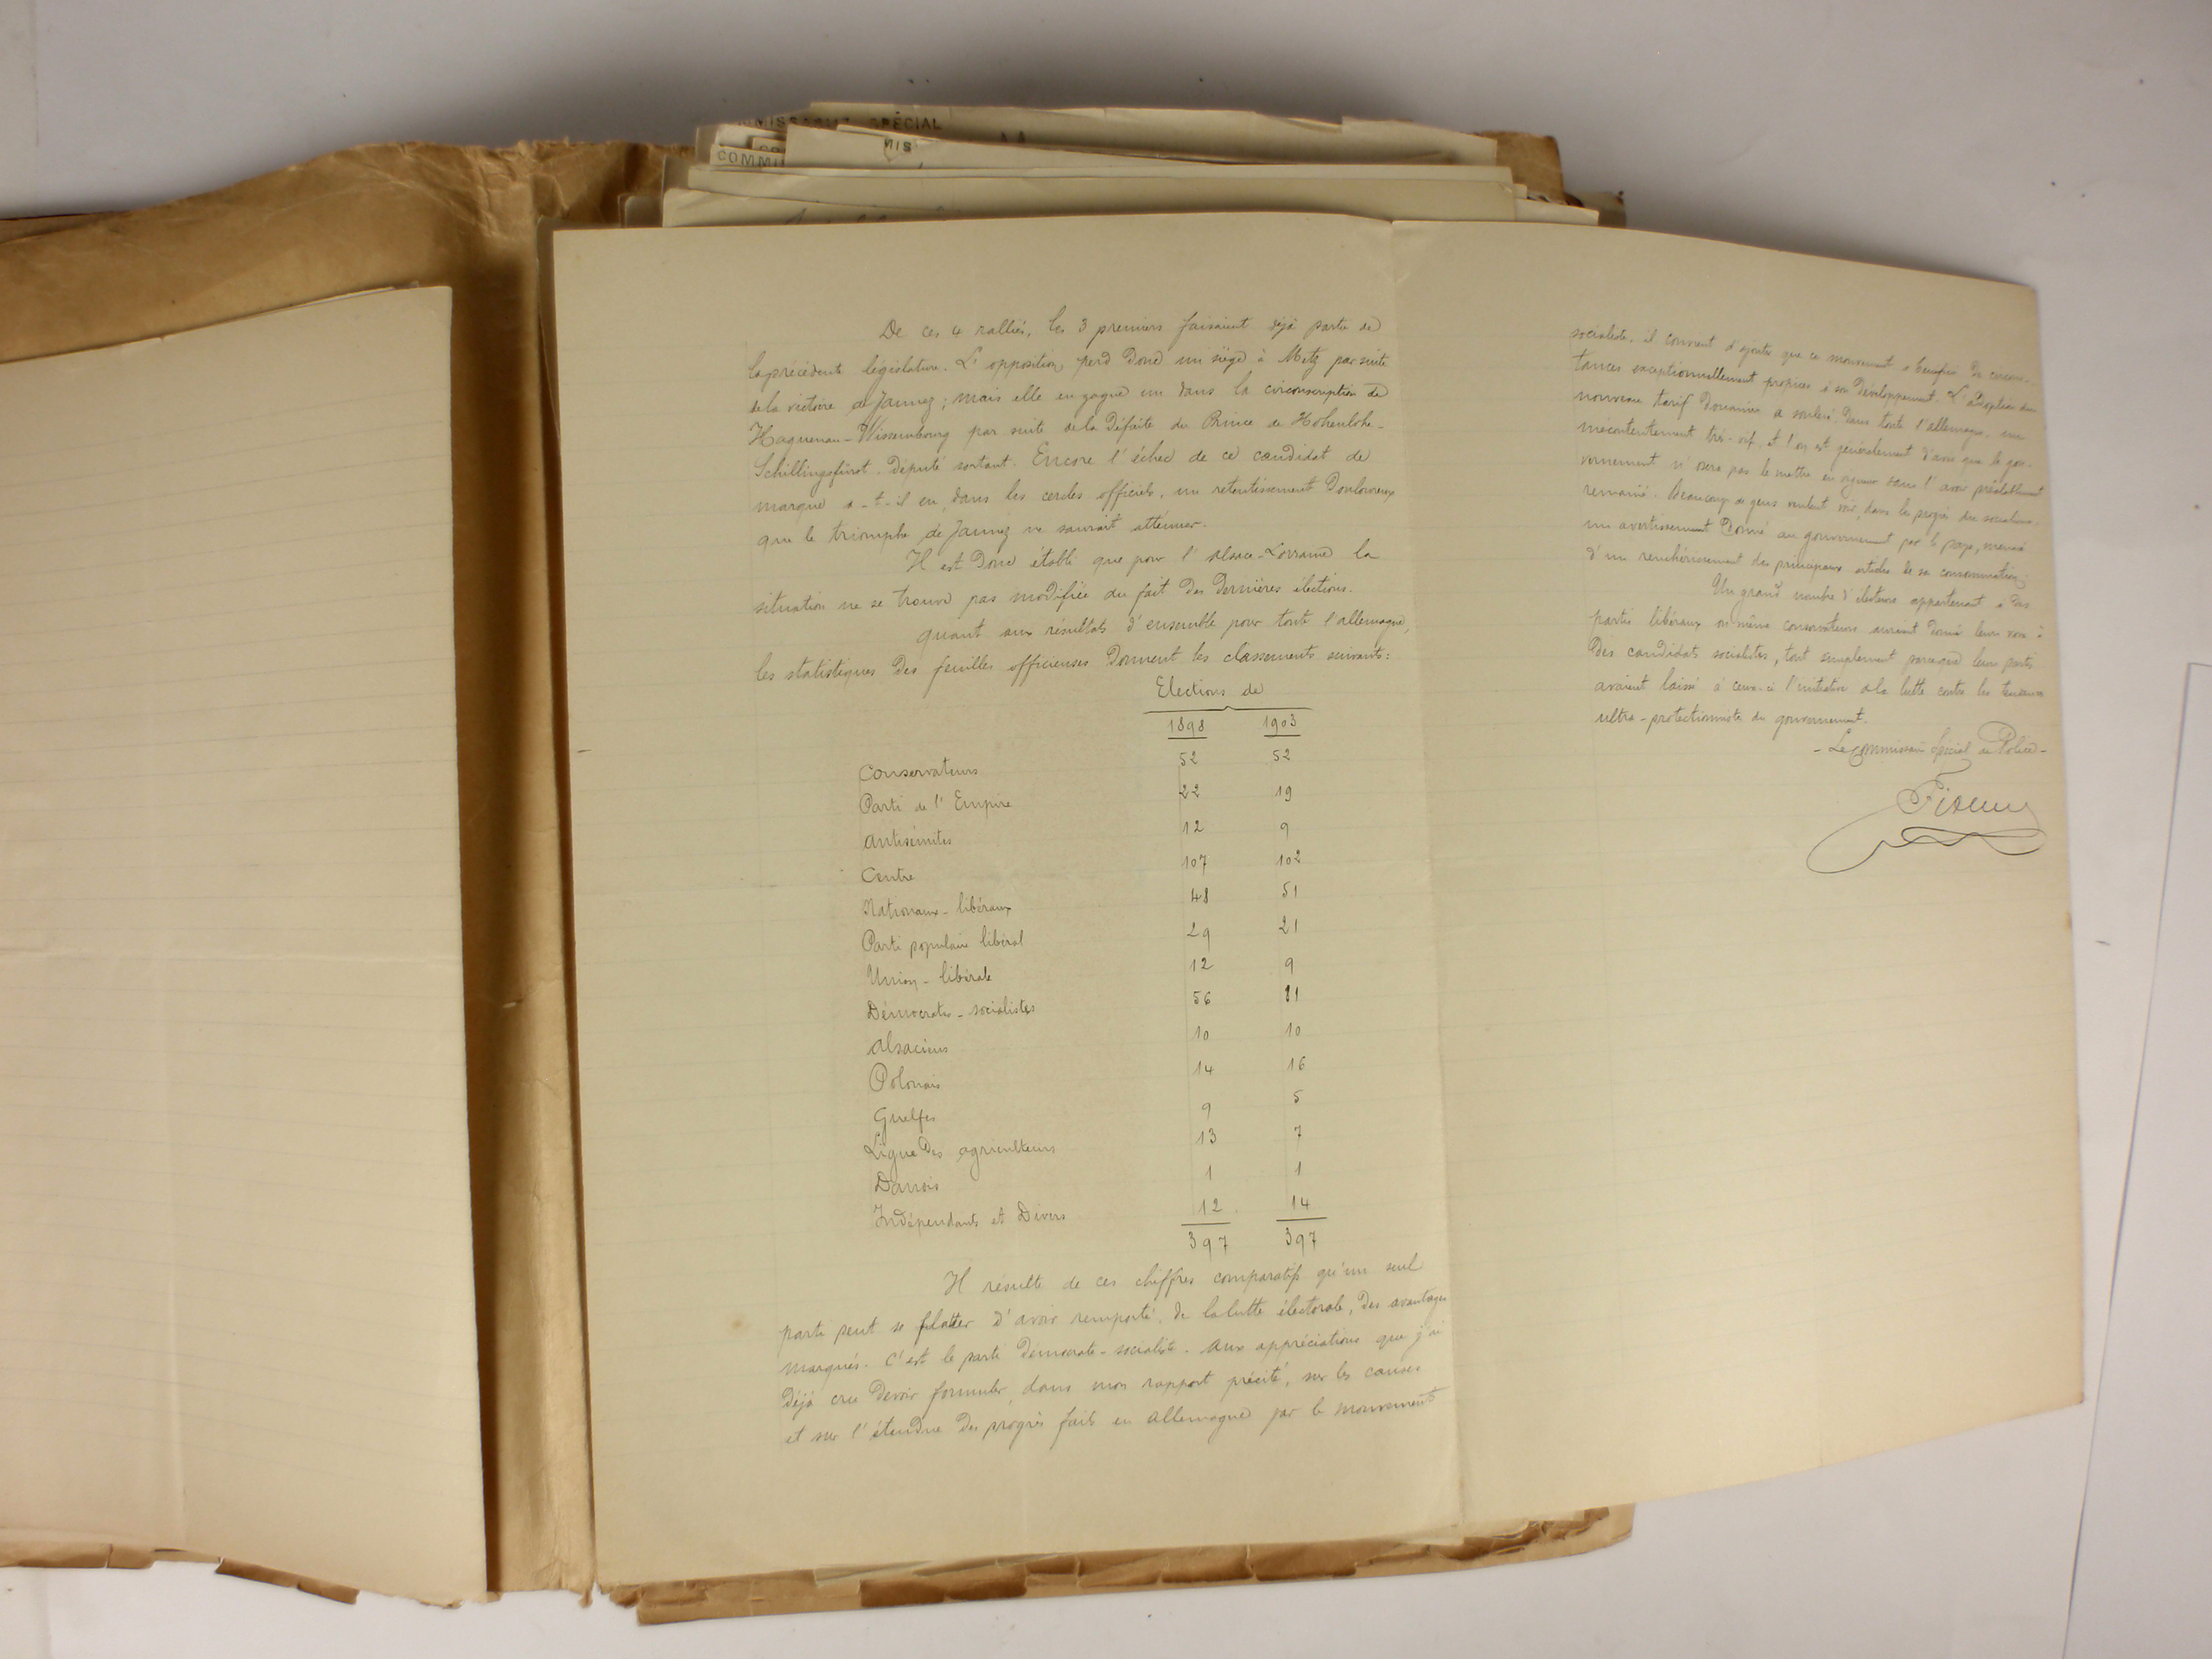 MISSARIAT SPÉCIAL
MIS
COMMI
De ces 4 ralliés, les 3 premiers faisaient déjà partie de
la précédente législature. L'opposition perd donc un siège à Metz par suite
de la victoire de Jaunez; mais elle en gagne un dans la circonscription de
Haguenau-Wissembourg par suite de la défaite du Prince de Hohenlohe-
Schillingsfürst. député sortant. Encore l'échec de ce candidat de
marque a-t-il eu, dans les cercles officiels, un retentissement douloureux
que le triomphe de Jaunez ne saurait atténuer.
Il est donc établi que pour l'alsace-Lorraine la
situation ne se trouve pas modifiée du fait des dernières élections.
quant aux résultats d'ensemble pour toute l'allemagne,
les statistiques des feuilles officieuses donnent les classements suivants:
Elections de
1898 1903
Conservateurs 52 52
Parti de l'Empire 22 19
antisémites 12 9
Centre 107 102
Nationaux-libéraux 48 51
Parti populaire libéral 29 21
Union-libérale 12 9
Démocrates-socialistes 56 81
alsaciens 10 10
Polonais 14 16
Guelfes 9 5
Ligue des agriculteurs 13 7
Danois 1 1
Indépendants et Divers 12 14
397 397
Il résulte de ces chiffres comparatifs qu'un seul
parti peut se flatter d'avoir remporté, de la lutte électorale, des avantages
marqués. C'est le parti démocrate-socialiste. aux appréciations que j'ai
déjà cru devoir formuler, dans mon rapport précité, sur les causes
et sur l'étendue des progrès faits en allemagne par le mouvement
socialiste, il convient d'ajouter que ce mouvement a bénéficié de circons-
tances exceptionnellement propices à son développement. L'adoption du
nouveau tarif douanier a soulevé dans toute l'allemagne, un
mécontentement très-vif et l'on est généralement d'avis que le gou-
vernement n'osera pas le mettre en vigueur sans l'avoir préalablement
remanié. Beaucoup de gens veulent voir, dans les progrès du socialisme
un avertissement donné au gouvernement par le pays, menacé
d'un renchérissement des principaux articles de sa consommation.
Un grand nombre d'électeurs appartenant à des
partis libéraux ou même conservateurs auraient donné leurs voix à
des candidats socialistes, tout simplement parceque leurs partis
avaient laissé à ceux-ci l'initiative de la lutte contre les tendances
ultra-protectionnistes du gouvernement.
- Le Commissaire Spécial de Police -